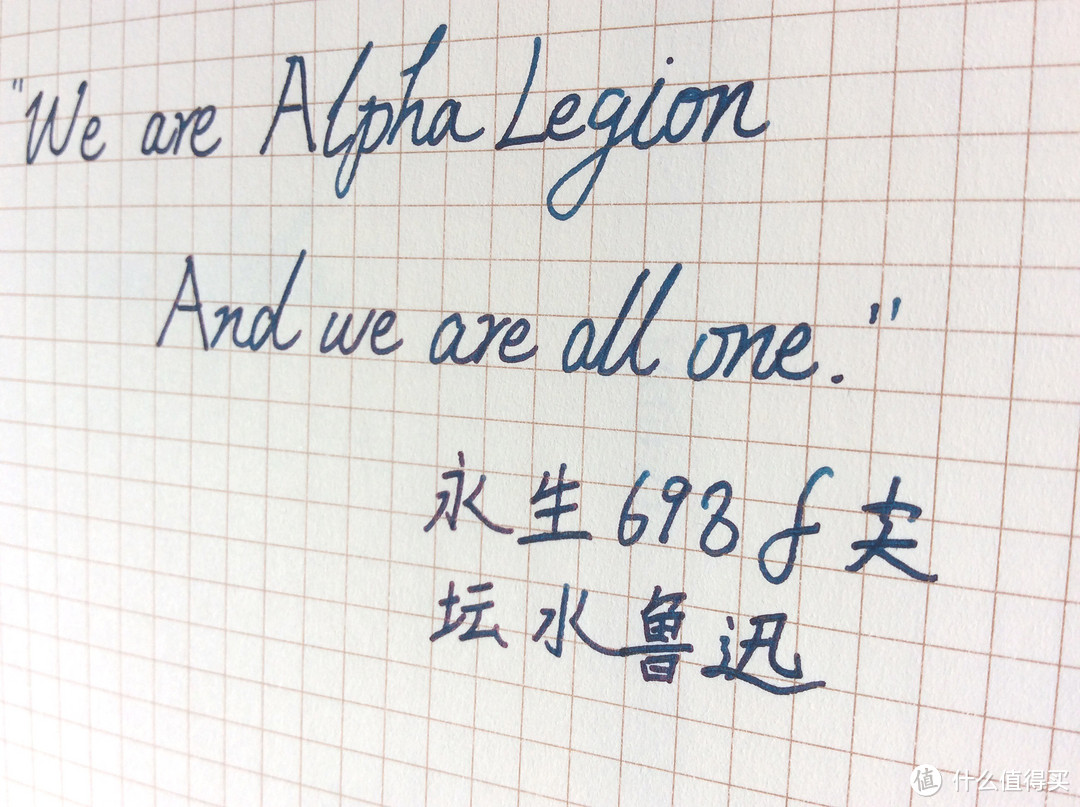 "We are Alpha Legion
And we are all one."
永生698f尖
坛水鲁迅
值 什么值得买